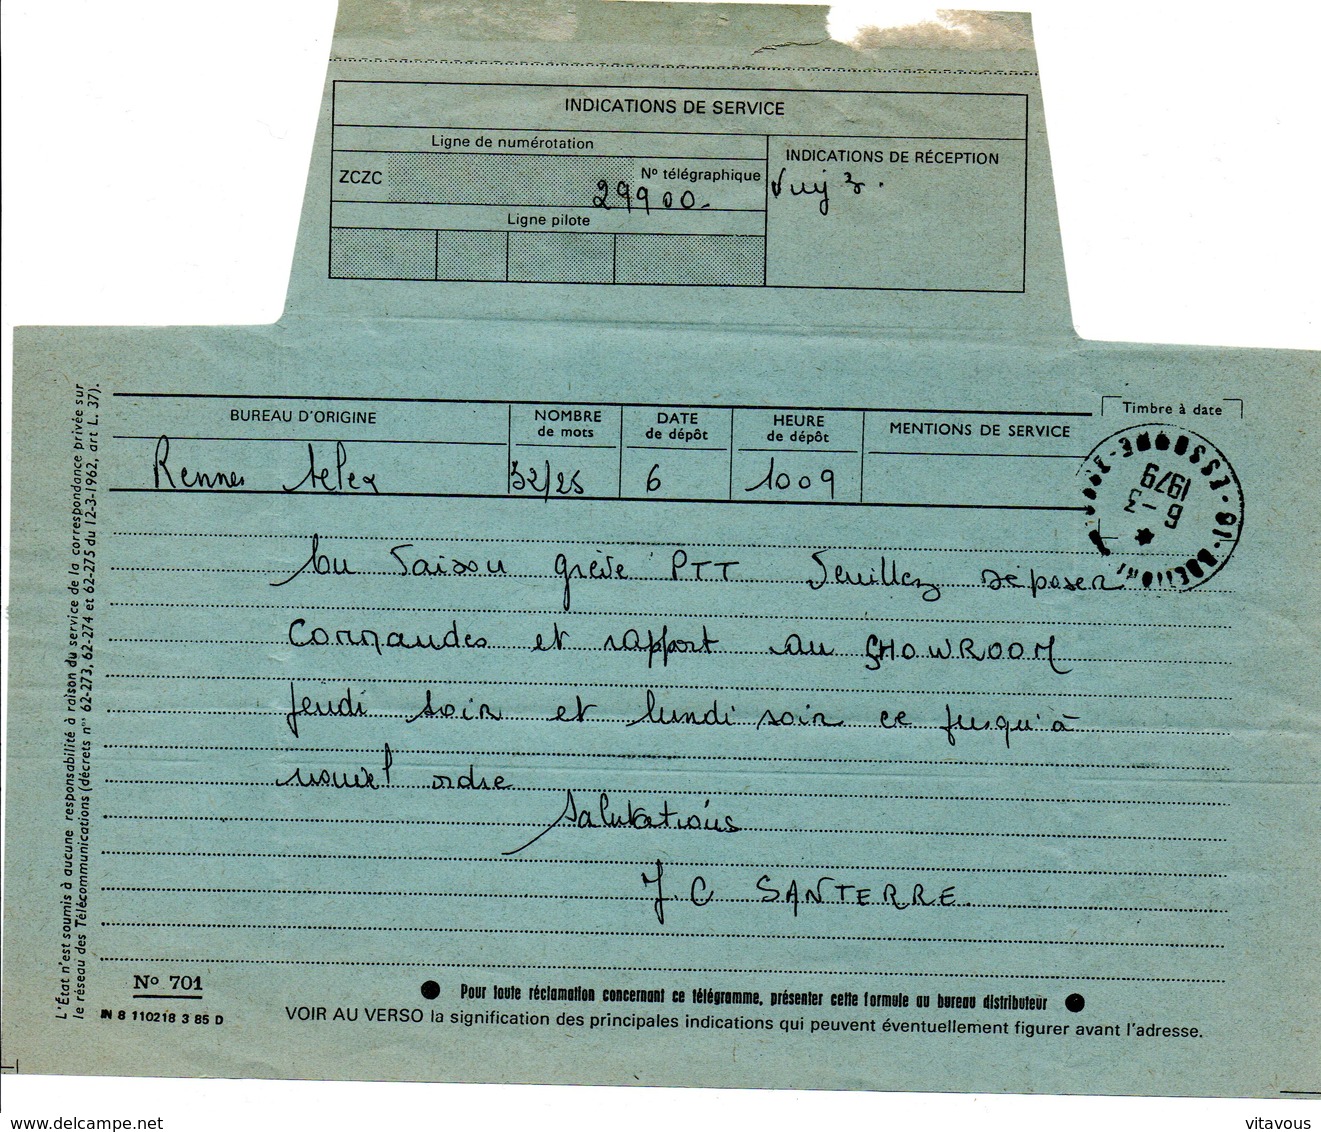 INDICATIONS DE SERVICE
Ligne de numérotation
INDICATIONS DE RÉCEPTION
ZCZC
N° télégraphique
29900
Ligne pilote
BUREAU D'ORIGINE
NOMBRE
de mots
DATE
de dépôt
HEURE
de dépôt
MENTIONS DE SERVICE
Timbre à date
Rennes telex
32/25
6
1009
6 -3
1979
Vu raison grève PTT Veuillez déposer
commandes et rapport au SHOWROOM
jeudi soir et lundi soir ce jusqu'à
nouvel ordre
Salutations
J.C SANTERRE.
L'État n'est soumis à aucune responsabilité à raison du service de la correspondance privée sur
le réseau des Télécommunications (décrets nos 62-273, 62-274 et 62-275 du 12-3-1962, art L. 37).
N° 701
IN 8 110218 3 85 D
● Pour toute réclamation concernant ce télégramme, présenter cette formule au bureau distributeur ●
VOIR AU VERSO la signification des principales indications qui peuvent éventuellement figurer avant l'adresse.
www.delcampe.net
vitavous